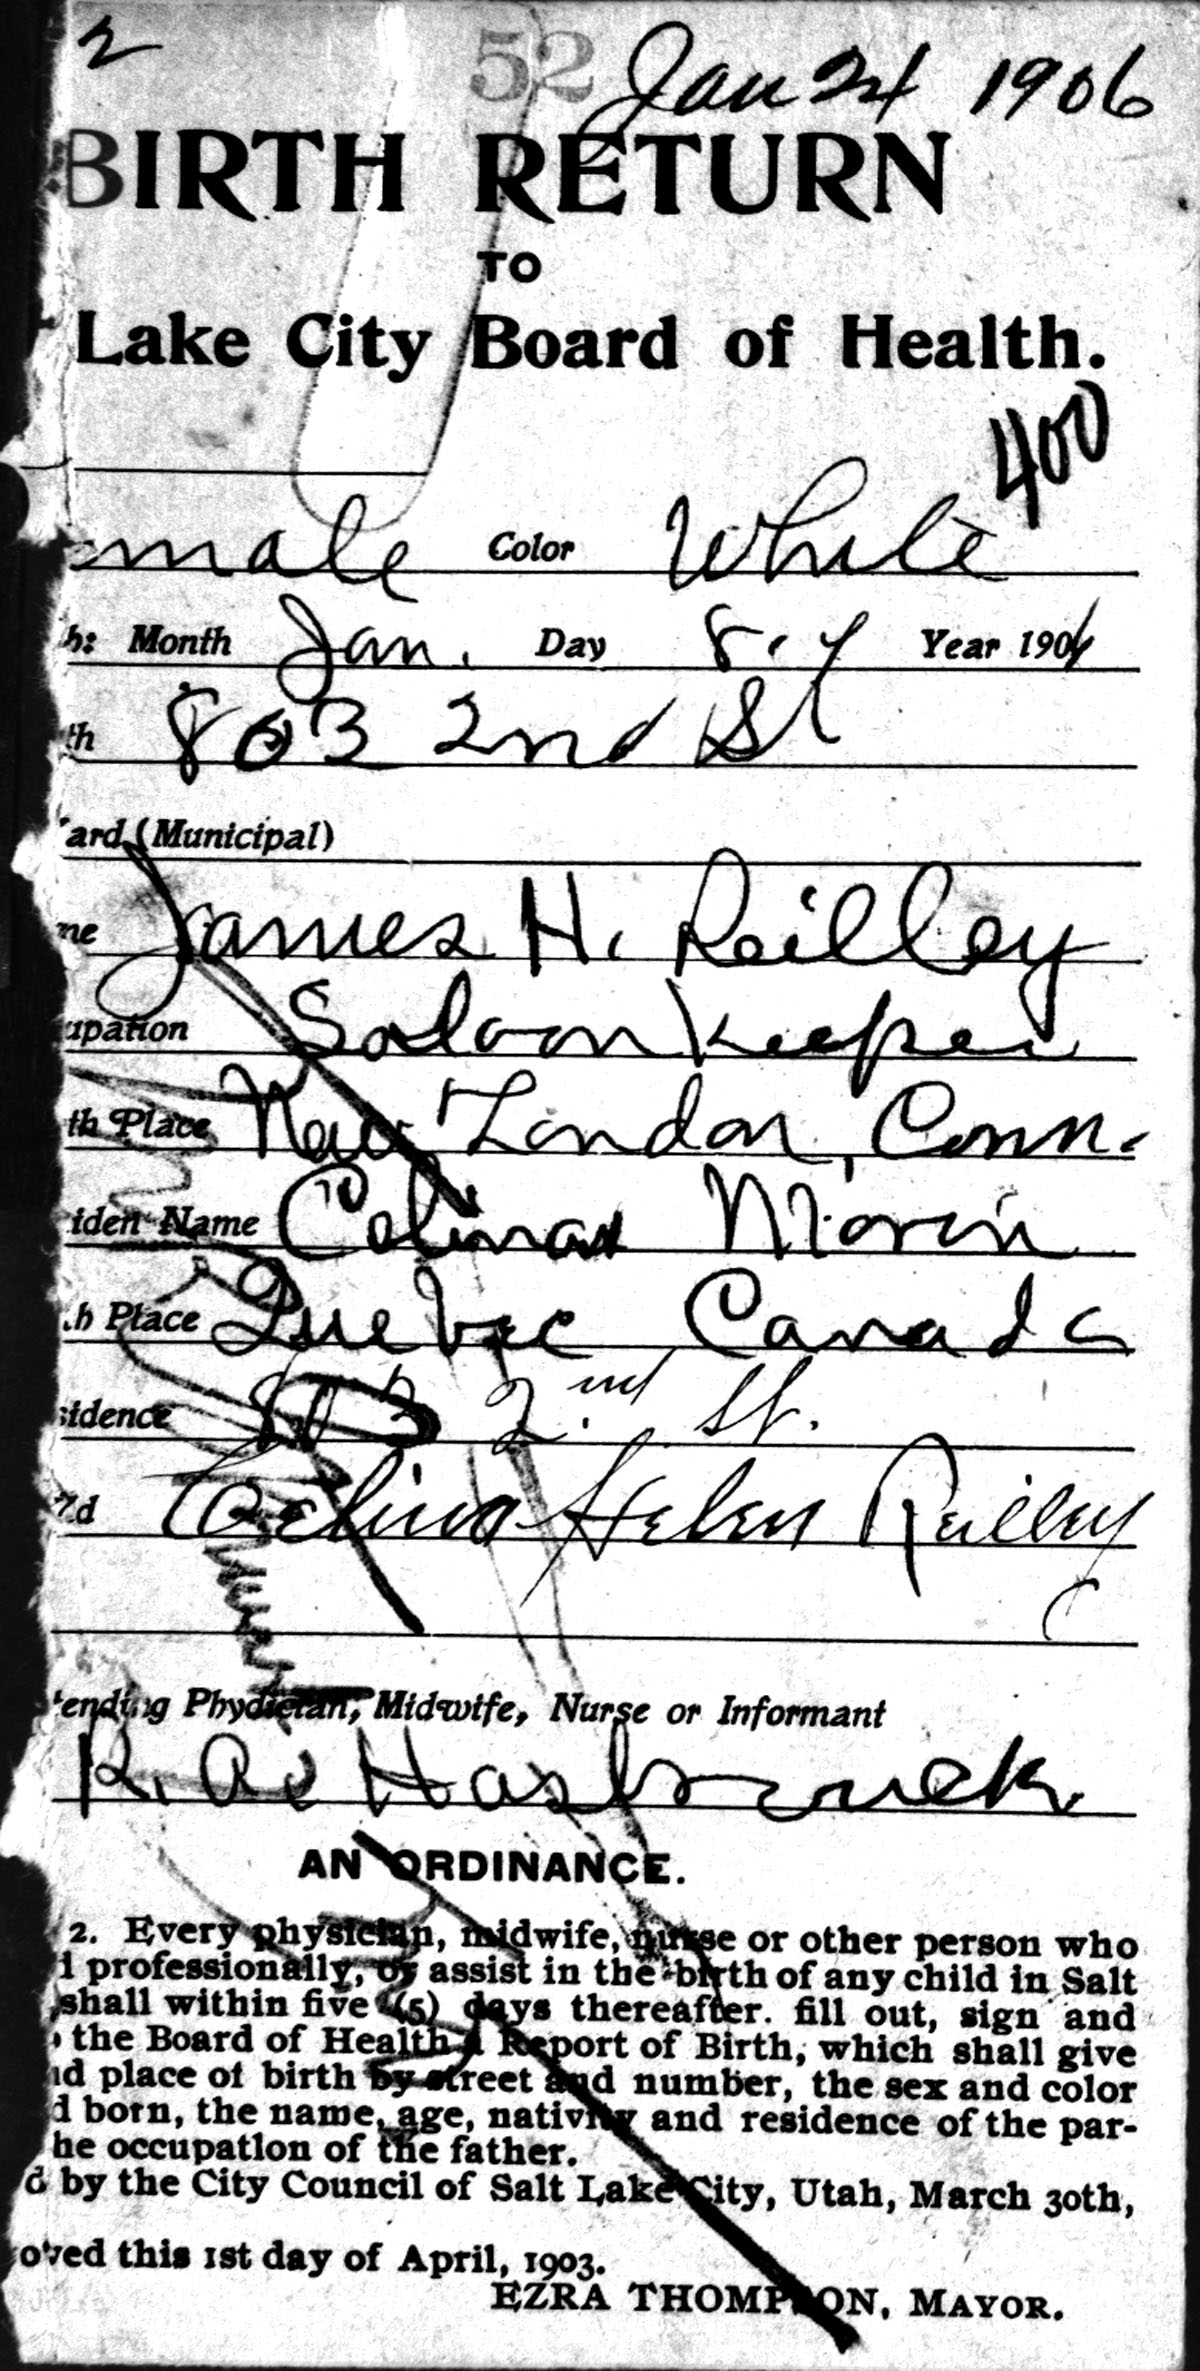 2
52 Jan 24 1906
BIRTH RETURN
TO
Lake City Board of Health.
400
emale Color White
h: Month Jan. Day 8. Year 190
th 803 2nd St
ard (Municipal)
me James H. Reilley
upation Saloon Keeper
th Place New London, Conn.
iden Name Celina Morin
h Place Quebec Canada
sidence 803 2nd St.
ld Celina Helen Reilley
tending Phydician, Midwife, Nurse or Informant
R. A. Hasbrouck
AN ORDINANCE.
2. Every physician, midwife, nurse or other person who
l professionally, or assist in the birth of any child in Salt
shall within five (5) days thereafter. fill out, sign and
the Board of Health a Report of Birth, which shall give
nd place of birth by street and number, the sex and color
d born, the name, age, nativity and residence of the par-
he occupation of the father.
d by the City Council of Salt Lake City, Utah, March 30th,
oved this 1st day of April, 1903.
EZRA THOMPSON, MAYOR.